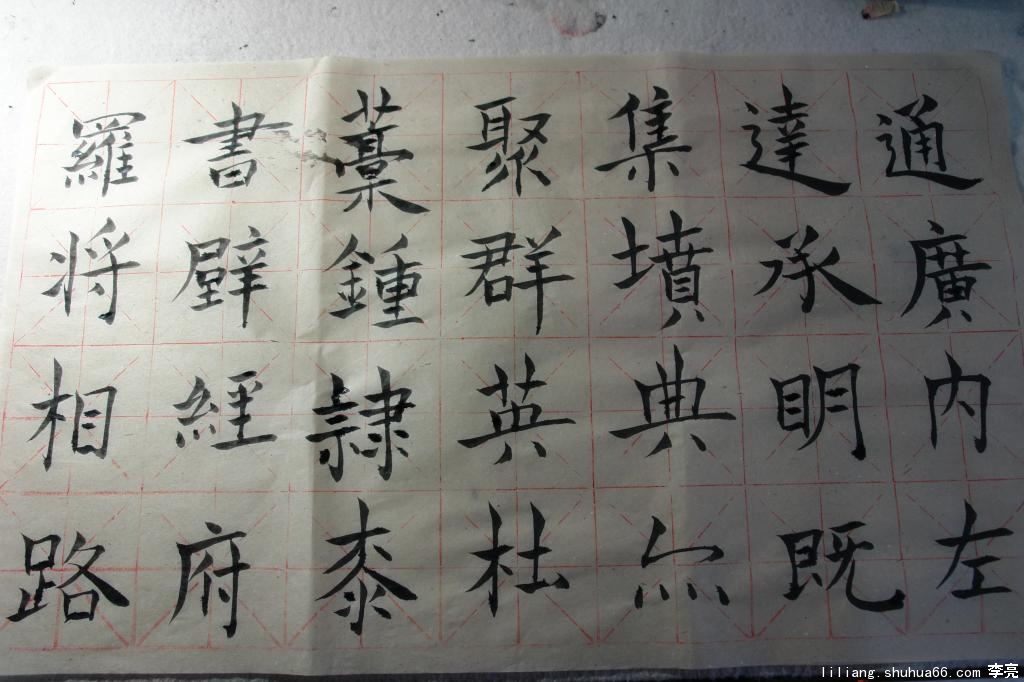 通廣內左
達承眀既
集墳典亦
聚群英杜
藁鍾隸桼
書壁經府
羅將相路
liliang.shuhua66.com 李亮